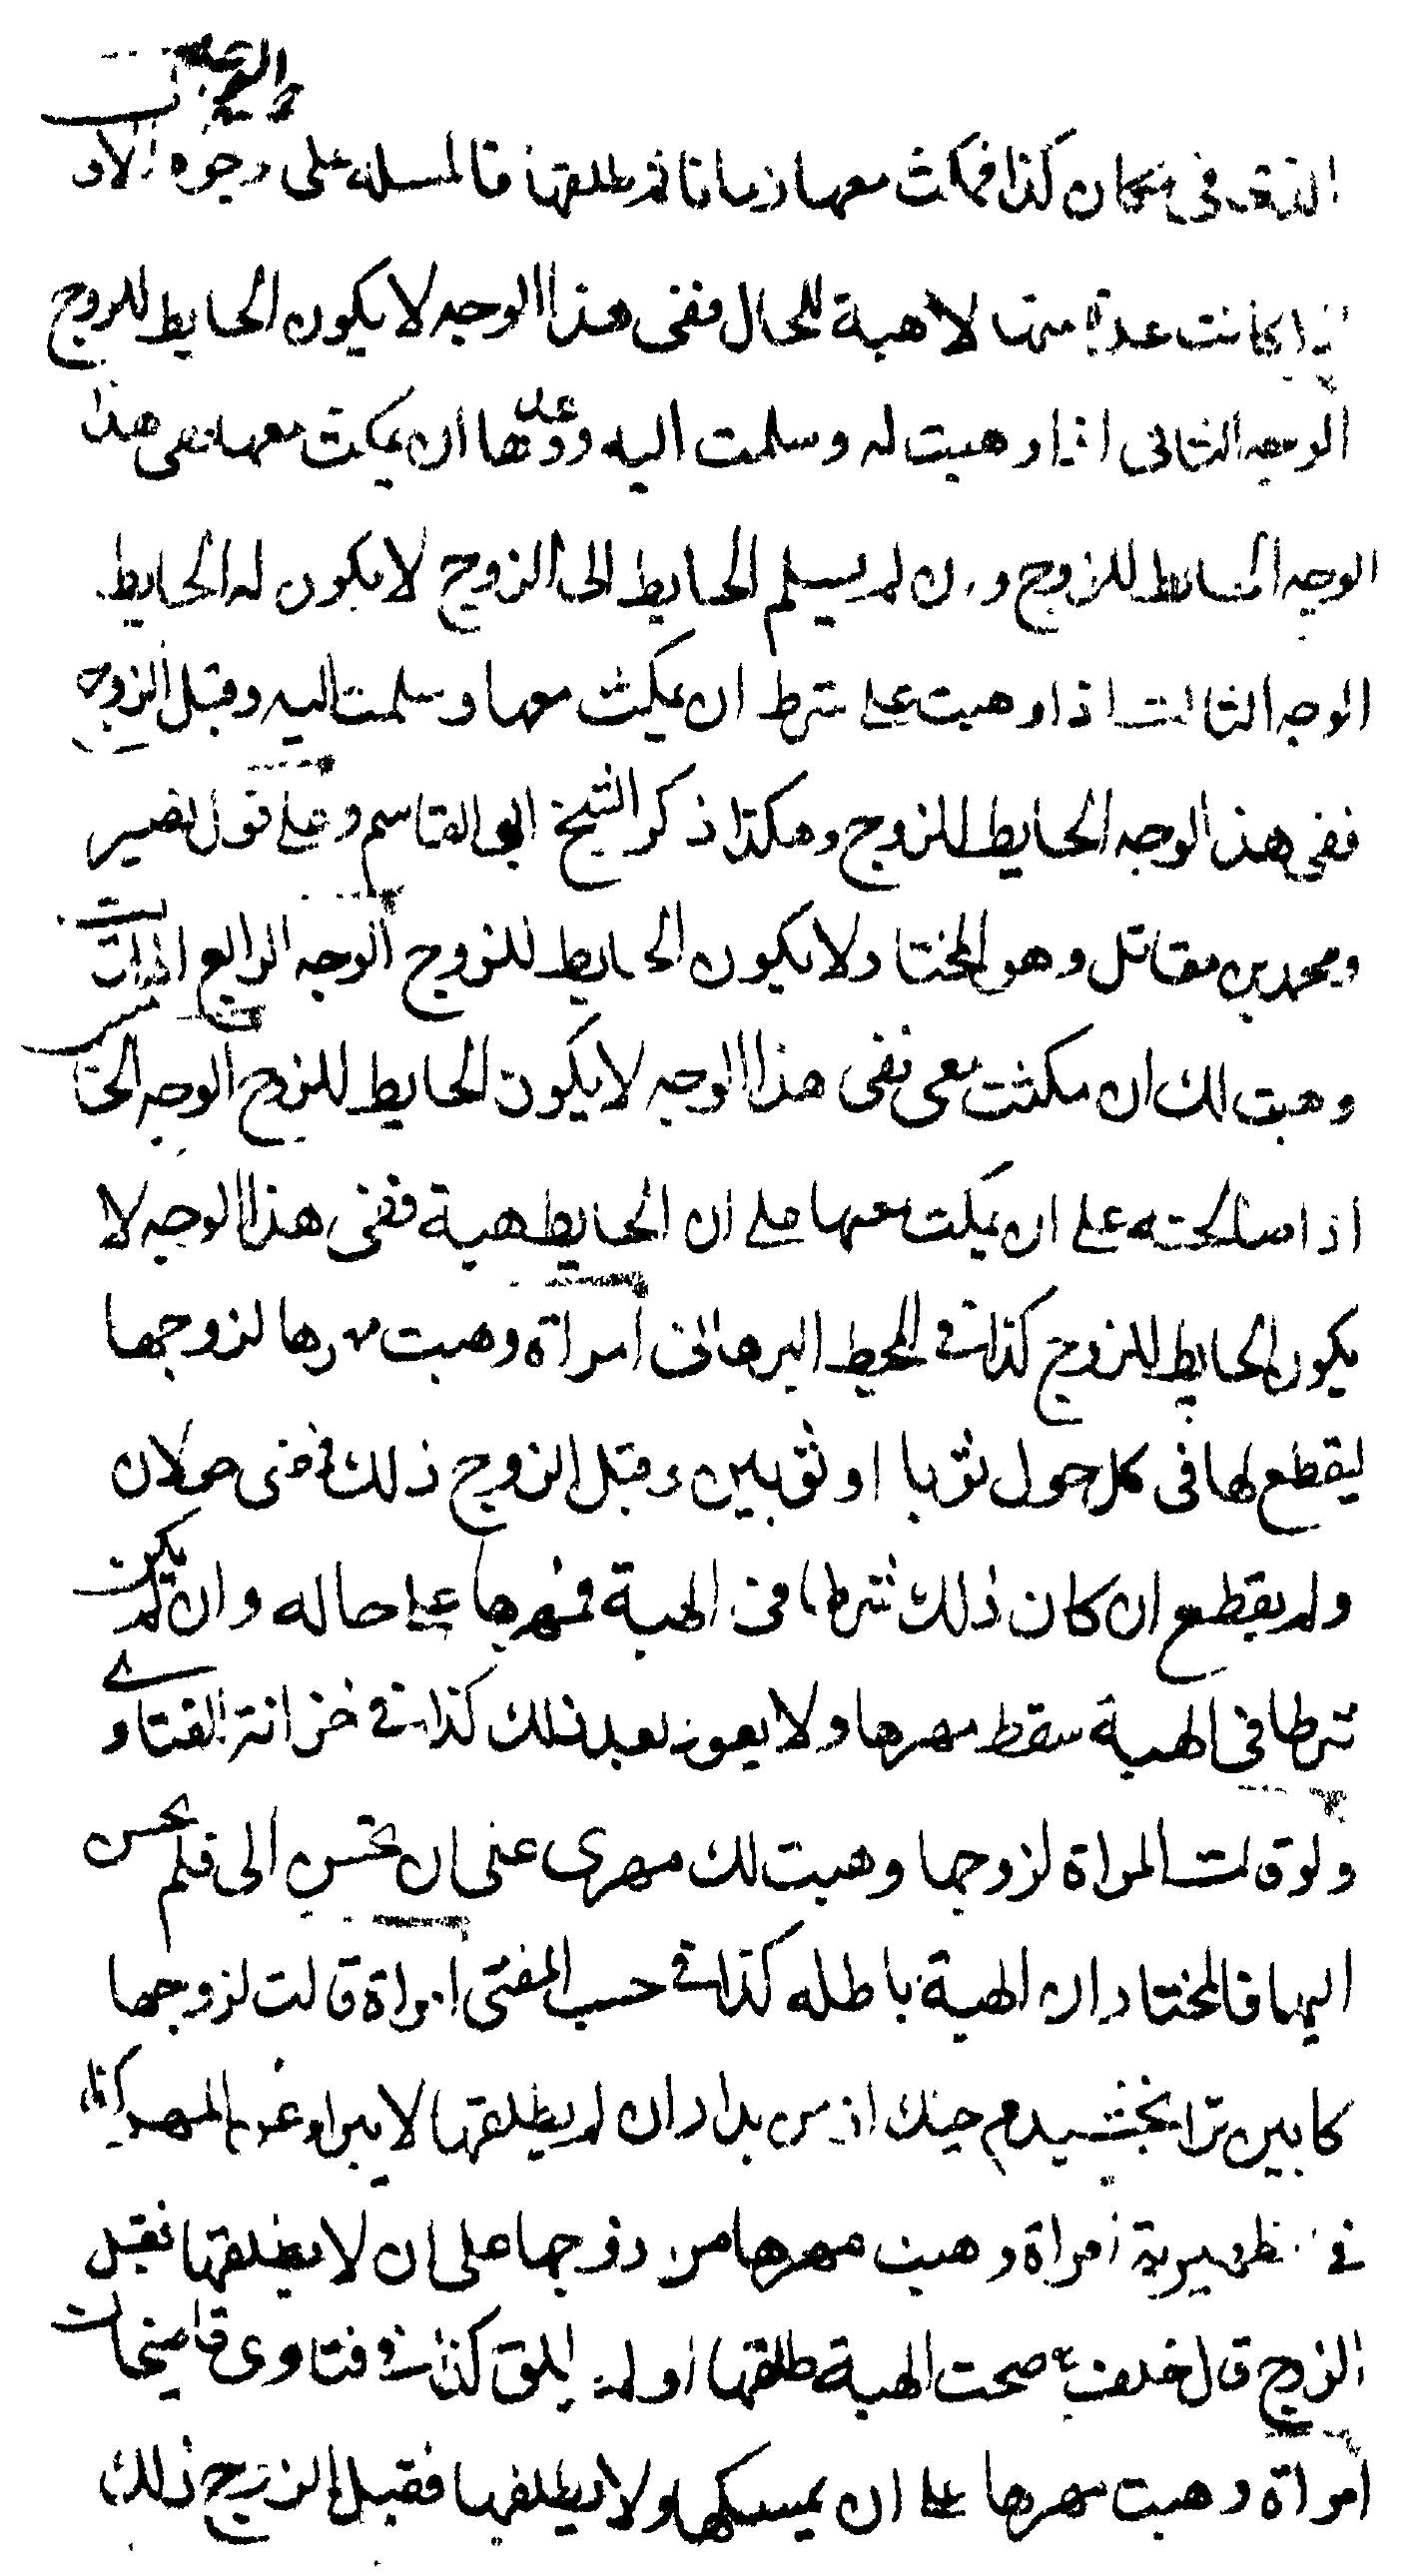 الذى فى مكان كذا فمكث معها زمانا ثم طلقها فالمسلة على وجوه الاو
اذا كانت عدة منها لا هبة للحال ففى هذا الوجه لا يكون الحايط للزوج
الوجه الثانى اذا وهبت له وسلمت اليه ووعدها ان يمكث معها ففى هذا
الوجه الحايط للزوج وان لم يسلم الحايط الى الزوج لا يكون له الحايط
الوجه الثالث اذا وهبت على شرط ان يمكث معها وسلمت اليه وقبل الزوج
ففى هذا الوجه الحايط للزوج وهكذا ذكر الشيخ ابو القاسم وعلى قول نصير
ومحمد بن مقاتل وهو المختار لا يكون الحايط للزوج الوجه الرابع اذا قالت
وهبت لك ان مكثت معى ففى هذا الوجه لا يكون الحايط للزوج الوجه الخامس
اذا صالحته على ان يمكث معها على ان الحايط هبة ففى هذا الوجه لا
يكون الحايط للزوج كذا فى المحيط البرهانى امراة وهبت مهرها لزوجها
ليقطع لها فى كل حول ثوبا او ثوبين وقبل الزوج ذلك فمضى حولان
ولم يقطع ان كان ذلك شرطا فى الهبة فمهرها على حاله وان لم يكن
شرطا فى الهبة سقط مهرها ولا يعود بعد ذلك كذا فى خزانة الفتاوى
ولو قالت المراة لزوجها وهبت لك مهرى على ان تحسن الى فلم يحسن
اليها فالمختار ان الهبة باطله كذا فى حسب المفتى امراة قالت لزوجها
كابين ترا بخشيدم چنك از من بدار ان لم يطلقها لا يبرا عن المهر كذا
فى الظهيرية امراة وهبت مهرها من زوجها على ان لا يطلقها فقبل
الزوج قال خلف صحت الهبة طلقها او لم يطلق كذا فى فتاوى قاضيخان
امراة وهبت مهرها على ان يمسكها ولا يطلقها فقبل الزوج ذلك